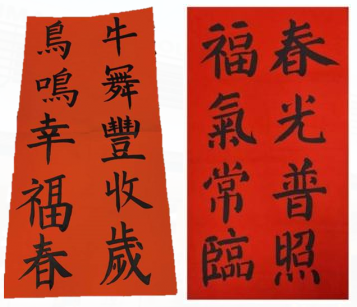 牛舞豐收歲
鳥鳴幸福春
春光普照
福氣常臨